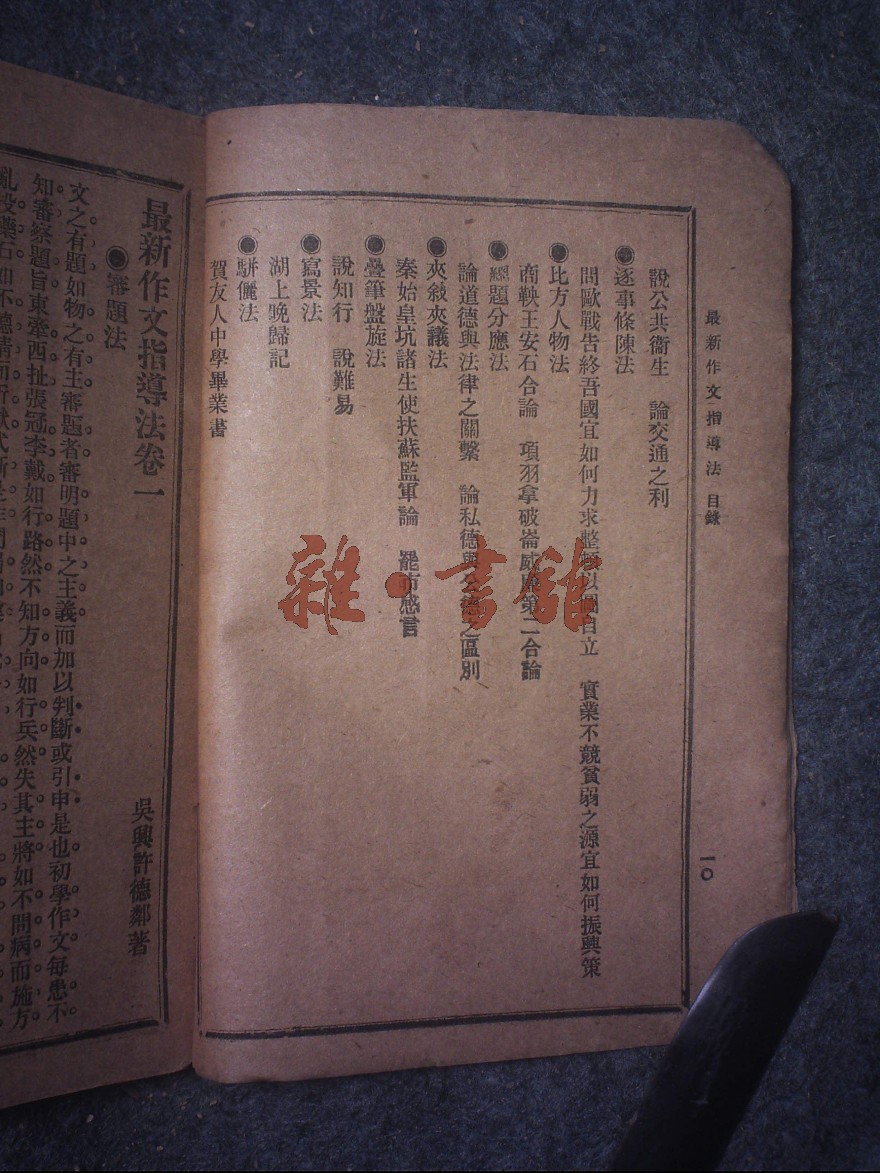 最新作文指導法 目錄
一〇
說公共衞生 論交通之利
●逐事條陳法
問歐戰告終吾國宜如何力求整頓以圖自立 實業不競貧弱之源宜如何振興策
●比方人物法
商鞅王安石合論 項羽拿破崙威廉第二合論
●題分應法
論道德與法律之關繫 論私德與公德之區別
●夾敍夾議法
秦始皇坑諸生使扶蘇監軍論 罷市感言
●疊筆盤旋法
說知行 說難易
●寫景法
湖上晚歸記
●駢儷法
賀友人中學畢業書
雜·書館
最新作文指導法卷一
吳興許德鄰著
●審題法
文之有題如物之有主審題者審明題中之主義而加以判斷或引申是也初學作文每患不
知審察題旨東牽西扯張冠李戴如行路然不知方向如行兵然失其主將如不問病而施方
亂投藥石如不